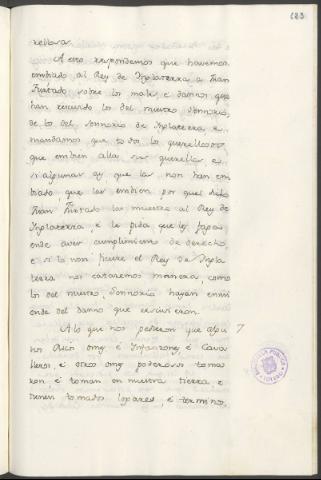 183
rellosa.
A esto respondemos que havemos
embiado al Rey de Inglaterra a Juan
Furtado sobre los males e dannos que
han recevido los del nuestro Sennorio,
de los del Sennorio de Inglaterra e
mandamos que todos los querellosos
que embien alla sus querellas, e
si algunas ay que las non han em
biado que las embien por quel dicho
Juan Furtado las muestre al Rey de
Inglaterra, e le pida que les faga
ende aver cumplimiento de derecho,
e si lo non ficiere el Rey de Ingla
terra nos cataremos manera, como
los del nuestro Sennorio hayan emm
ienda del danno que recivieron.
A lo que nos pedieron que algu 7
nos Ricos omes é Infanzones, é Cava
lleros, é otros omes poderosos toma
ron, é toman en nuestra tierra, e
tienen tomados logares, é terminos,